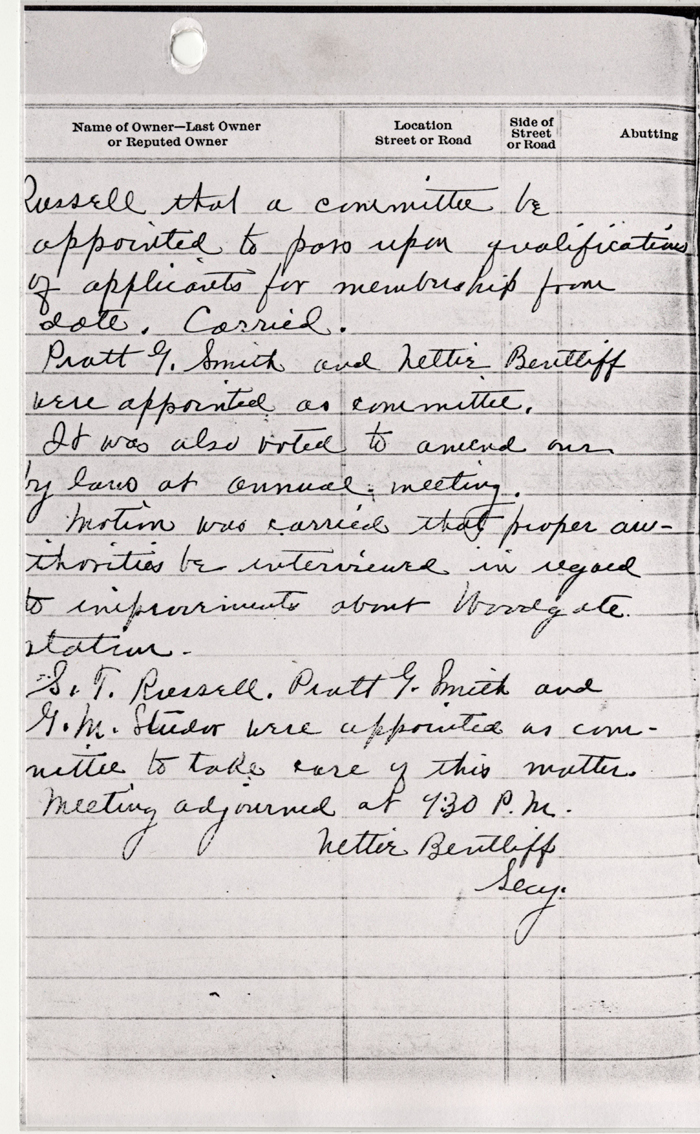 Name of Owner—Last Owner
or Reputed Owner
Location
Street or Road
Side of
Street
or Road
Abutting
Russell that a committee be
appointed to pass upon qualifications
of applicants for membership from
date. Carried.
Pratt G. Smith and Nettie Bentliff
were appointed as committee.
It was also voted to amend our
by laws at annual meeting.
Motion was carried that proper au-
thorities be interviewed in regard
to improvements about Woodgate
station.
S. T. Russell. Pratt G. Smith and
G. M. Studor were appointed as com-
mittee to take care of this matter.
Meeting adjourned at 9:30 P.M.
Nettie Bentliff
Secy.